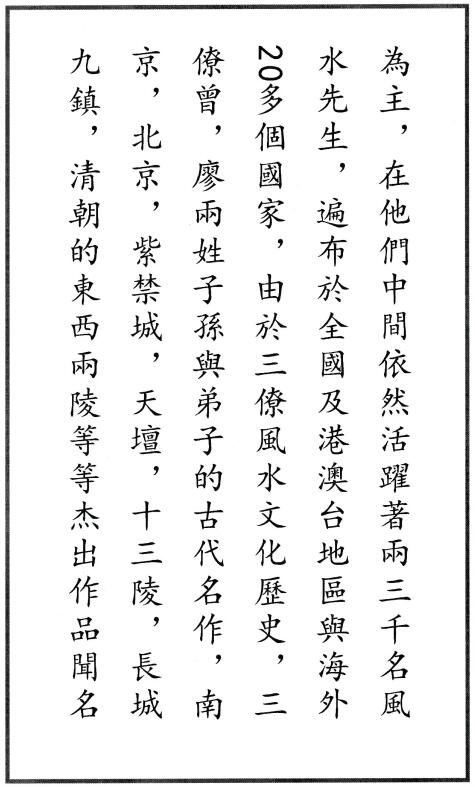 為主，在他們中間依然活躍著兩三千名風
水先生，遍布於全國及港澳台地區與海外
20多個國家，由於三僚風水文化歷史，三
僚曾，廖兩姓子孫與弟子的古代名作，南
京，北京，紫禁城，天壇，十三陵，長城
九鎮，清朝的東西兩陵等等杰出作品聞名